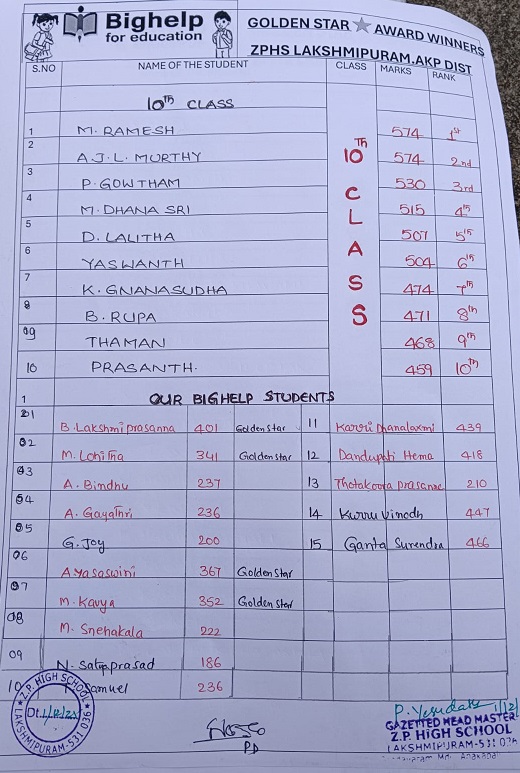 Bighelp
for education
GOLDEN STAR AWARD WINNERS
ZPHS LAKSHMIPURAM.AKP DIST
S.NO NAME OF THE STUDENT CLASS MARKS RANK
10TH CLASS
1 M. RAMESH 574 1st
2 A.J.L. MURTHY 574 2nd
3 P. GOWTHAM 530 3rd
4 M. DHANA SRI 515 4th
5 D. LALITHA 507 5th
6 YASWANTH 504 6th
7 K. GNANASUDHA 474 7th
8 B. RUPA 471 8th
09 THAMAN 468 9th
10 PRASANTH. 459 10th
10TH CLASS
1 OUR BIGHELP STUDENTS
01 B. Lakshmi prasanna 401 Golden star 11 Karri Dhanalaxmi 439
02 M. Lohitha 341 Golden star 12 Dandupati Hema 418
03 A. Bindhu 237 13 Thotakoora prasanna 210
04 A. Gayathri 236 14 Kurru Vinodh 447
05 G. Joy 200 15 Ganta Surendra 466
06 A Yasaswini 367 Golden star
07 M. Kavya 352 Golden star
08 M. Snehakala 222
09 N. Satya prasad 186
10 Samuel 236
Z.P. HIGH SCHOOL
LAKSHMIPURAM-531 036
PD
GAZETTED HEAD MASTER
Z.P. HIGH SCHOOL
LAKSHMIPURAM-531 036